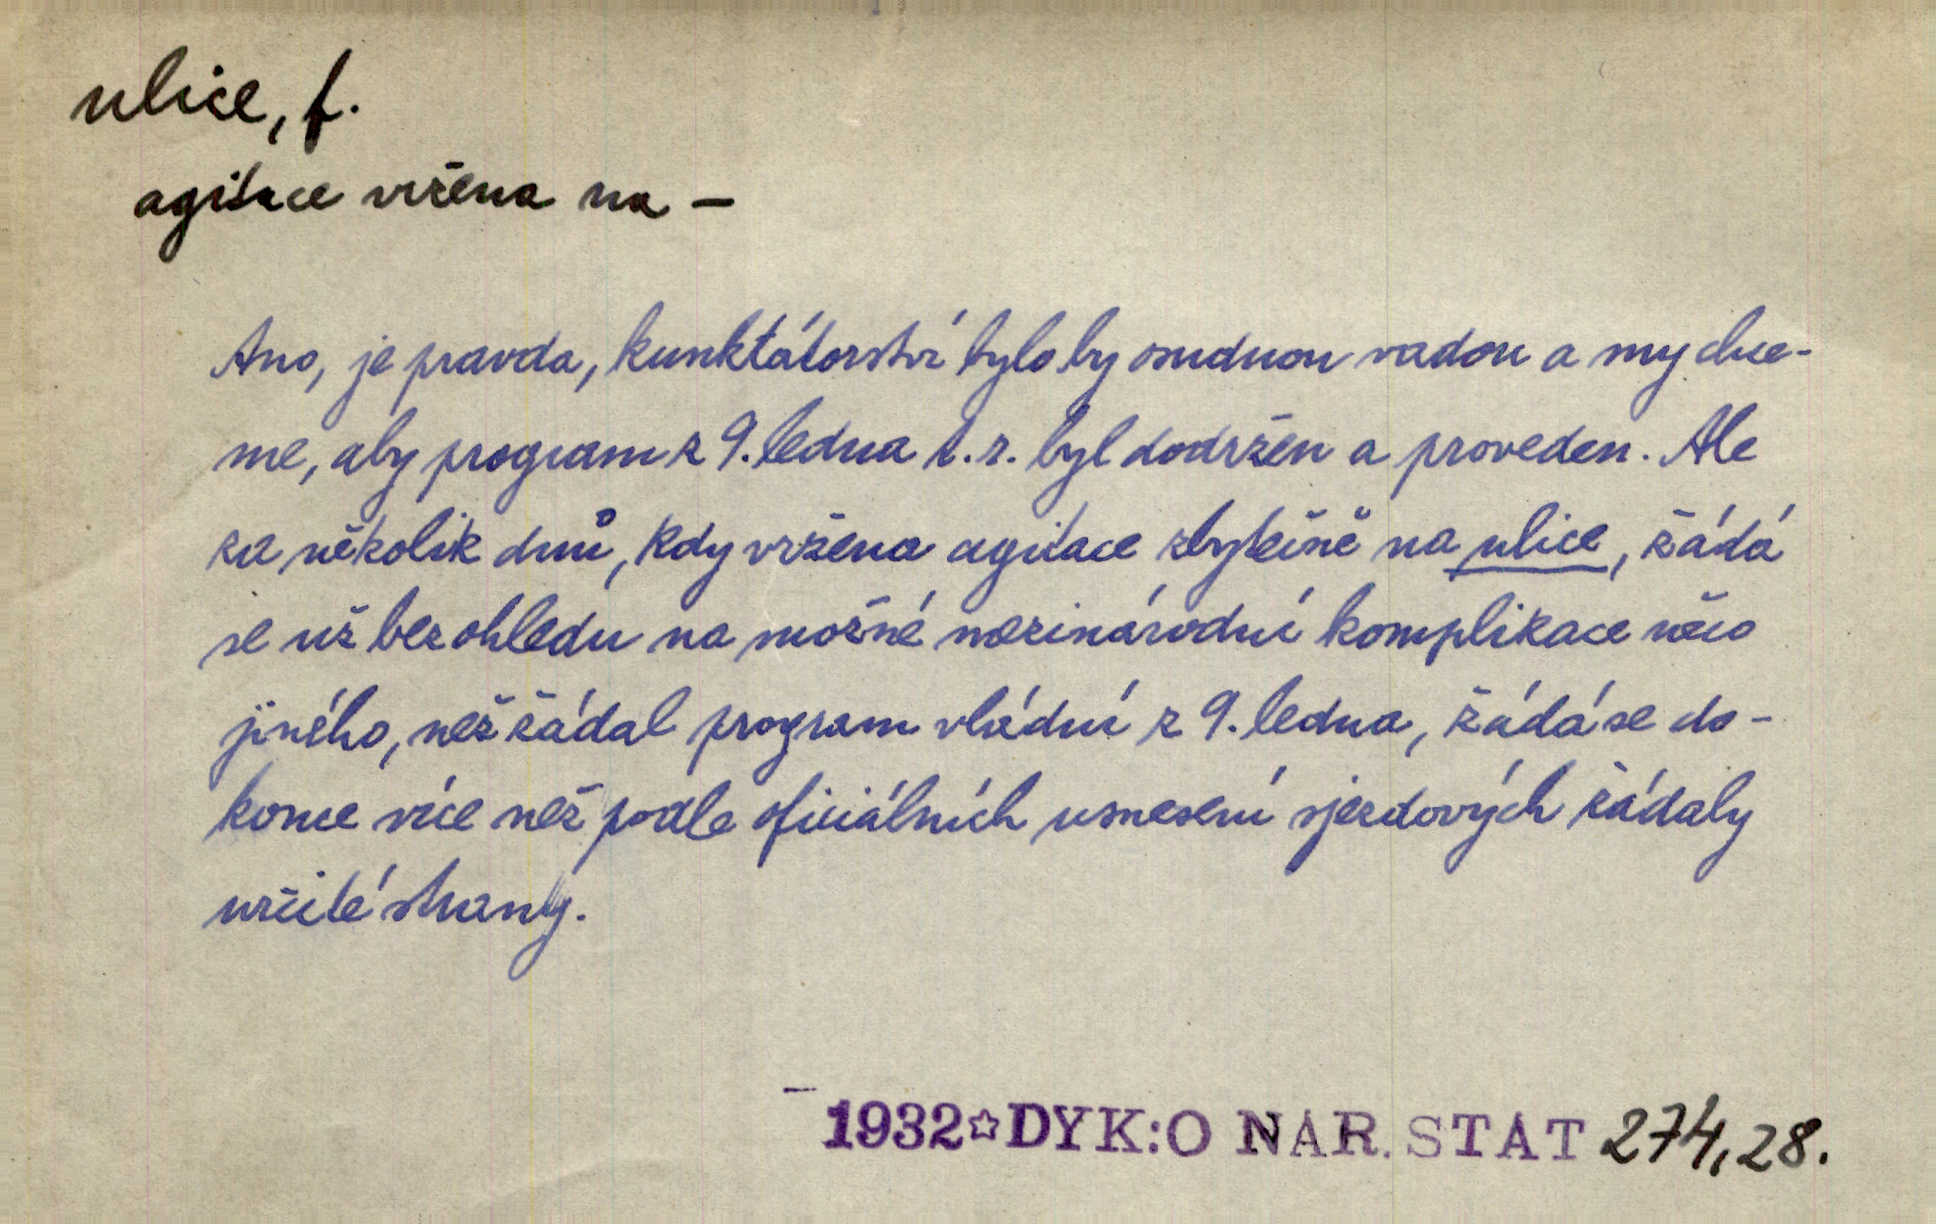 ulice, f.
agitace vržena na –
Ano, je pravda, kunktátorství bylo by osudnou vadou a my chce-
me, aby program z 9. ledna t. r. byl dodržen a proveden. Ale
za několik dnů, kdy vržena agitace zbytečně na ulice, žádá
se už bez ohledu na možné mezinárodní komplikace něco
jiného, než žádal program vládní z 9. ledna, žádá se do-
konce více než podle oficiálních usnesení sjezdových žádaly
určité strany.
1932☆DYK:O NAR. STAT 274,28.